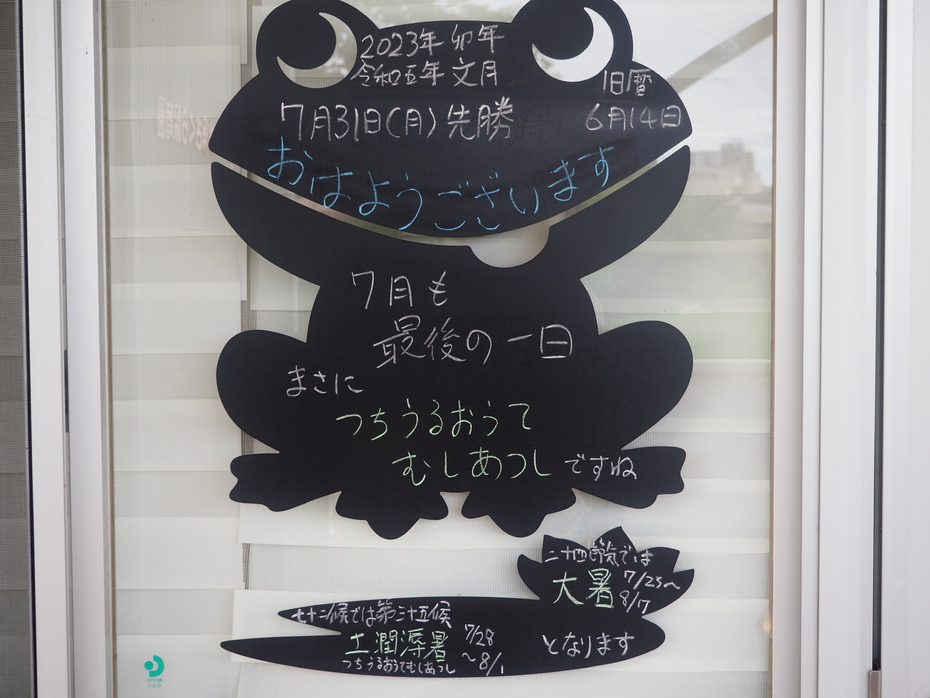 2023年 卯年
令和五年 文月
旧暦
7月31日(月) 先勝
6月14日
おはようございます
7月も
最後の一日
まさに
つちうるおうて
むしあつしですね
二十四節気では
大暑 7/23~
8/7
七十二候では第三十五候
土潤溽暑 7/28
~8/1
つちうるおうてむしあつし
となります